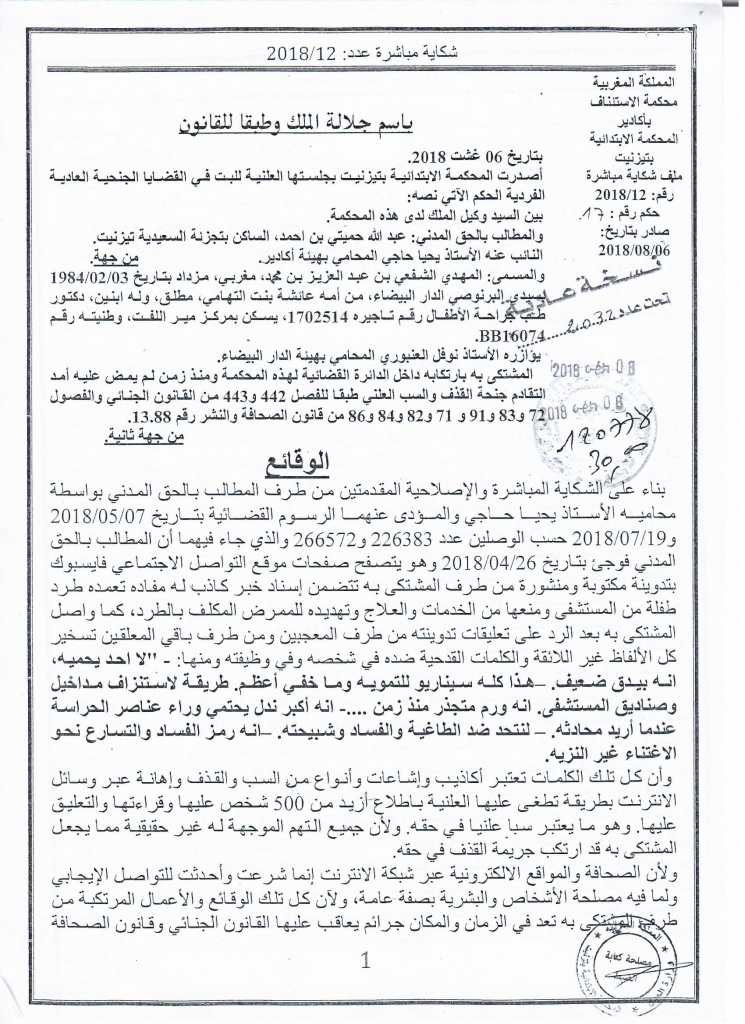 شكاية مباشرة عدد: 2018/12
المملكة المغربية
محكمة الاستئناف
بأكادير
المحكمة الابتدائية
بتيزنيت
ملف شكاية مباشرة
رقم: 2018/12
حكم رقم : 17.
صادر بتاريخ:
2018/08/06
نسخة عادية
تحت عدد 2032
باسم جلالة الملك وطبقا للقانون
بتاريخ 06 غشت 2018.
أصدرت المحكمة الابتدائية بتيزنيت بجلستها العلنية للبت في القضايا الجنحية العادية
الفردية الحكم الآتي نصه:
بين السيد وكيل الملك لدى هذه المحكمة.
والمطالب بالحق المدني: عبد الله حميتي بن احمد، الساكن بتجزئة السعيدية تيزنيت.
النائب عنه الأستاذ يحيا حاجي المحامي بهيئة أكادير. من جهة.
والمسمى: المهدي الشفعي بن عبد العزيز بن محمد، مغربي، مزداد بتاريخ 1984/02/03
بسيدي البرنوصي الدار البيضاء، من أمه عائشة بنت التهامي، مطلق، وله ابنين، دكتور
طب جراحة الأطفال رقم تاجيره 1702514، يسكن بمركز مير اللفت، وطنيته رقم
BB16074.
يؤازره الأستاذ نوفل العنبوري المحامي بهيئة الدار البيضاء.
المشتكى به بارتكابه داخل الدائرة القضائية لهذه المحكمة ومنذ زمن لم يمض عليه أمد
التقادم جنحة القذف والسب العلني طبقا للفصل 442 و443 من القانون الجنائي والفصول
72 و83 و91 و 71 و82 و84 و86 من قانون الصحافة والنشر رقم 13.88.
من جهة ثانية.
الوقائع
بناء على الشكاية المباشرة والإصلاحية المقدمتين من طرف المطالب بالحق المدني بواسطة
محاميه الأستاذ يحيا حاجي والمؤدى عنهما الرسوم القضائية بتاريخ 2018/05/07
و2018/07/19 حسب الوصلين عدد 226383 و266572 والذي جاء فيهما أن المطالب بالحق
المدني فوجئ بتاريخ 2018/04/26 وهو يتصفح صفحات موقع التواصل الاجتماعي فايسبوك
بتدوينة مكتوبة ومنشورة من طرف المشتكى به تتضمن إسناد خبر كاذب له مفاده تعمده طرد
طفلة من المستشفى ومنعها من الخدمات والعلاج وتهديده للممرض المكلف بالطرد، كما واصل
المشتكى به بعد الرد على تعليقات تدوينته من طرف المعجبين ومن طرف باقي المعلقين تسخير
كل الألفاظ غير اللائقة والكلمات القدحية ضده في شخصه وفي وظيفته ومنها: - "لا احد يحميه،
انه بيدق ضعيف. –هذا كله سيناريو للتمويه وما خفي أعظم. طريقة لاستنزاف مداخيل
وصناديق المستشفى. انه ورم متجذر منذ زمن ....- انه أكبر ندل يحتمي وراء عناصر الحراسة
عندما أريد محادثه. – لنتحد ضد الطاغية والفساد وشبيحته. –انه رمز الفساد والتسارع نحو
الاغتناء غير النزيه.
وأن كل تلك الكلمات تعتبر أكاذيب وإشاعات وأنواع من السب والقذف وإهانة عبر وسائل
الانترنت بطريقة تطغى عليها العلنية باطلاع أزيد من 500 شخص عليها وقراءتها والتعليق
عليها. وهو ما يعتبر سبا علنيا في حقه. ولأن جميع التهم الموجهة له غير حقيقية مما يجعل
المشتكى به قد ارتكب جريمة القذف في حقه.
ولأن الصحافة والمواقع الالكترونية عبر شبكة الانترنت إنما شرعت وأحدثت للتواصل الإيجابي
ولما فيه مصلحة الأشخاص والبشرية بصفة عامة، ولآن كل تلك الوقائع والأعمال المرتكبة من
طرف المشتكى به تعد في الزمان والمكان جرائم يعاقب عليها القانون الجنائي وقانون الصحافة
1